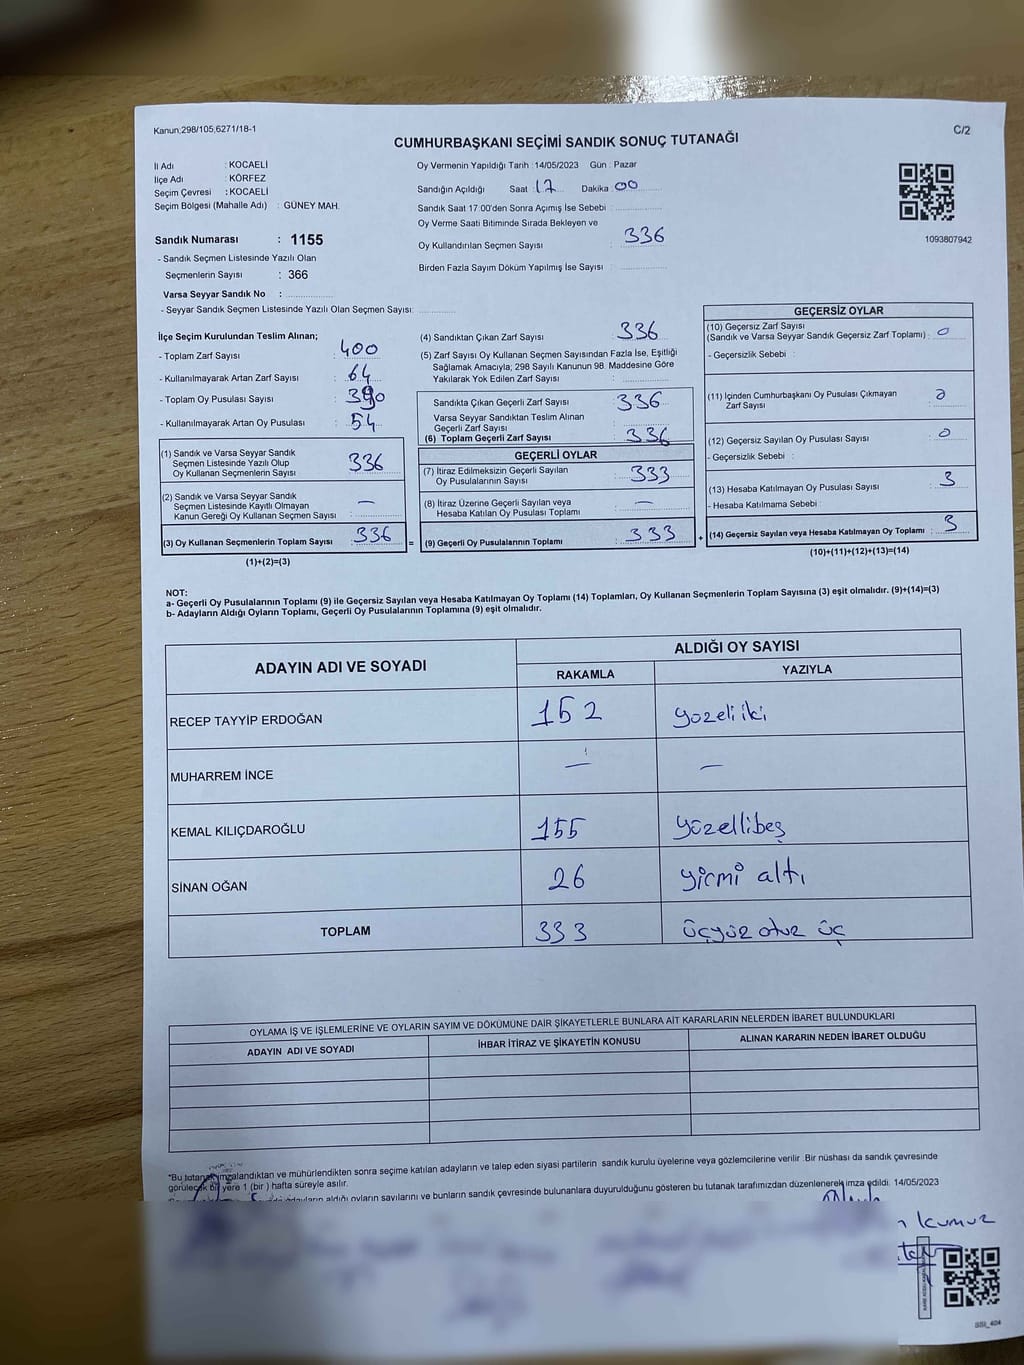 Kanun;298/105;6271/18-1
C/2
CUMHURBAŞKANI SEÇİMİ SANDIK SONUÇ TUTANAĞI
İl Adı : KOCAELİ
İlçe Adı : KÖRFEZ
Seçim Çevresi : KOCAELİ
Seçim Bölgesi (Mahalle Adı) : GÜNEY MAH.
Sandık Numarası : 1155
- Sandık Seçmen Listesinde Yazılı Olan
Seçmenlerin Sayısı : 366
Varsa Seyyar Sandık No :
- Seyyar Sandık Seçmen Listesinde Yazılı Olan Seçmen Sayısı:
Oy Vermenin Yapıldığı Tarih : 14/05/2023 Gün : Pazar
Sandığın Açıldığı Saat : 17 Dakika : 00
Sandık Saat 17:00'den Sonra Açımış İse Sebebi :
Oy Verme Saati Bitiminde Sırada Bekleyen ve
Oy Kullandırılan Seçmen Sayısı : 336
Birden Fazla Sayım Döküm Yapılmış İse Sayısı :
1093807942
İlçe Seçim Kurulundan Teslim Alınan;
- Toplam Zarf Sayısı : 400
- Kullanılmayarak Artan Zarf Sayısı : 64
- Toplam Oy Pusulası Sayısı : 390
- Kullanılmayarak Artan Oy Pusulası : 54
(1) Sandık ve Varsa Seyyar Sandık
Seçmen Listesinde Yazılı Olup
Oy Kullanan Seçmenlerin Sayısı : 336
(2) Sandık ve Varsa Seyyar Sandık
Seçmen Listesinde Kayıtlı Olmayan
Kanun Gereği Oy Kullanan Seçmen Sayısı : —
(3) Oy Kullanan Seçmenlerin Toplam Sayısı : 336
=
(1)+(2)=(3)
(4) Sandıktan Çıkan Zarf Sayısı : 336
(5) Zarf Sayısı Oy Kullanan Seçmen Sayısından Fazla İse, Eşitliği
Sağlamak Amacıyla; 298 Sayılı Kanunun 98. Maddesine Göre
Yakılarak Yok Edilen Zarf Sayısı :
Sandıkta Çıkan Geçerli Zarf Sayısı : 336
Varsa Seyyar Sandıktan Teslim Alınan
Geçerli Zarf Sayısı :
(6) Toplam Geçerli Zarf Sayısı : 336
GEÇERLİ OYLAR
(7) İtiraz Edilmeksizin Geçerli Sayılan
Oy Pusulalarının Sayısı : 333
(8) İtiraz Üzerine Geçerli Sayılan veya
Hesaba Katılan Oy Pusulası Toplamı : —
(9) Geçerli Oy Pusulalarının Toplamı : 333
+
GEÇERSİZ OYLAR
(10) Geçersiz Zarf Sayısı
(Sandık ve Varsa Seyyar Sandık Geçersiz Zarf Toplamı) : 0
- Geçersizlik Sebebi :
(11) İçinden Cumhurbaşkanı Oy Pusulası Çıkmayan
Zarf Sayısı : 0
(12) Geçersiz Sayılan Oy Pusulası Sayısı : 0
- Geçersizlik Sebebi :
(13) Hesaba Katılmayan Oy Pusulası Sayısı : 3
- Hesaba Katılmama Sebebi :
(14) Geçersiz Sayılan veya Hesaba Katılmayan Oy Toplamı : 3
(10)+(11)+(12)+(13)=(14)
NOT:
a- Geçerli Oy Pusulalarının Toplamı (9) ile Geçersiz Sayılan veya Hesaba Katılmayan Oy Toplamı (14) Toplamları, Oy Kullanan Seçmenlerin Toplam Sayısına (3) eşit olmalıdır. (9)+(14)=(3)
b- Adayların Aldığı Oyların Toplamı, Geçerli Oy Pusulalarının Toplamına (9) eşit olmalıdır.
ADAYIN ADI VE SOYADI
ALDIĞI OY SAYISI
RAKAMLA YAZIYLA
RECEP TAYYİP ERDOĞAN 152 yüzeli iki
MUHARREM İNCE — —
KEMAL KILIÇDAROĞLU 155 yüzellibeş
SİNAN OĞAN 26 yirmi altı
TOPLAM 333 üçyüz otuz üç
OYLAMA İŞ VE İŞLEMLERİNE VE OYLARIN SAYIM VE DÖKÜMÜNE DAİR ŞİKAYETLERLE BUNLARA AİT KARARLARIN NELERDEN İBARET BULUNDUKLARI
ADAYIN ADI VE SOYADI İHBAR İTİRAZ VE ŞİKAYETİN KONUSU ALINAN KARARIN NEDEN İBARET OLDUĞU
*Bu tutanak imzalandıktan ve mühürlendikten sonra seçime katılan adayların ve talep eden siyasi partilerin sandık kurulu üyelerine veya gözlemcilerine verilir .Bir nüshası da sandık çevresinde
görülecek bir yere 1 (bir ) hafta süreyle asılır.
adayların aldığı oyların sayılarını ve bunların sandık çevresinde bulunanlara duyurulduğunu gösteren bu tutanak tarafımızdan düzenlenerek imza edildi. 14/05/2023
SSI_404